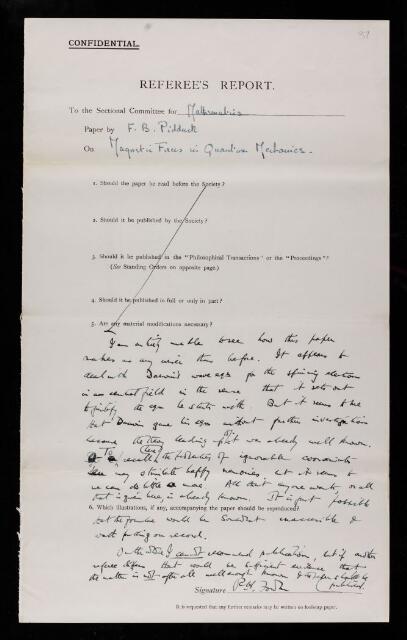 87
CONFIDENTIAL.
REFEREE'S REPORT.
To the Sectional Committee for Mathematics
Paper by F. B. Pidduck
On Magnetic Forces in Quantum Mechanics.
1. Should the paper be read before the Society?
2. Should it be published by the Society?
3. Should it be published in the "Philosophical Transactions" or the "Proceedings"?
(See Standing Orders on opposite page.)
4. Should it be published in full or only in part?
5. Are any material modifications necessary?
I am entirely unable to see how this paper
makes us any wiser than before. It appears to
deal with Darwin's wave eqns for the spinning electron
in a central field in the sense that it sets out
to justify the eqn he starts with. But it seems to me
that Darwin gave his eqn without further investigation
because the theory leading to it was already well known.
To recall the of ignorable coordinates
may stimulate happy memories, but it seems to
me can do little more. All that anyone wants, or all
that is given here, is already known. It is just possible
6. Which illustrations, if any, accompanying the paper should be reproduced?
that the formulae would be somewhat inaccessible &
worth putting on record.
On the whole I cannot recommend publication, but if another
referee differs that would be sufficient evidence that
the matter is not after all well enough known &
published.
Signature R.H. Fowler
It is requested that any further remarks may be written on foolscap paper.